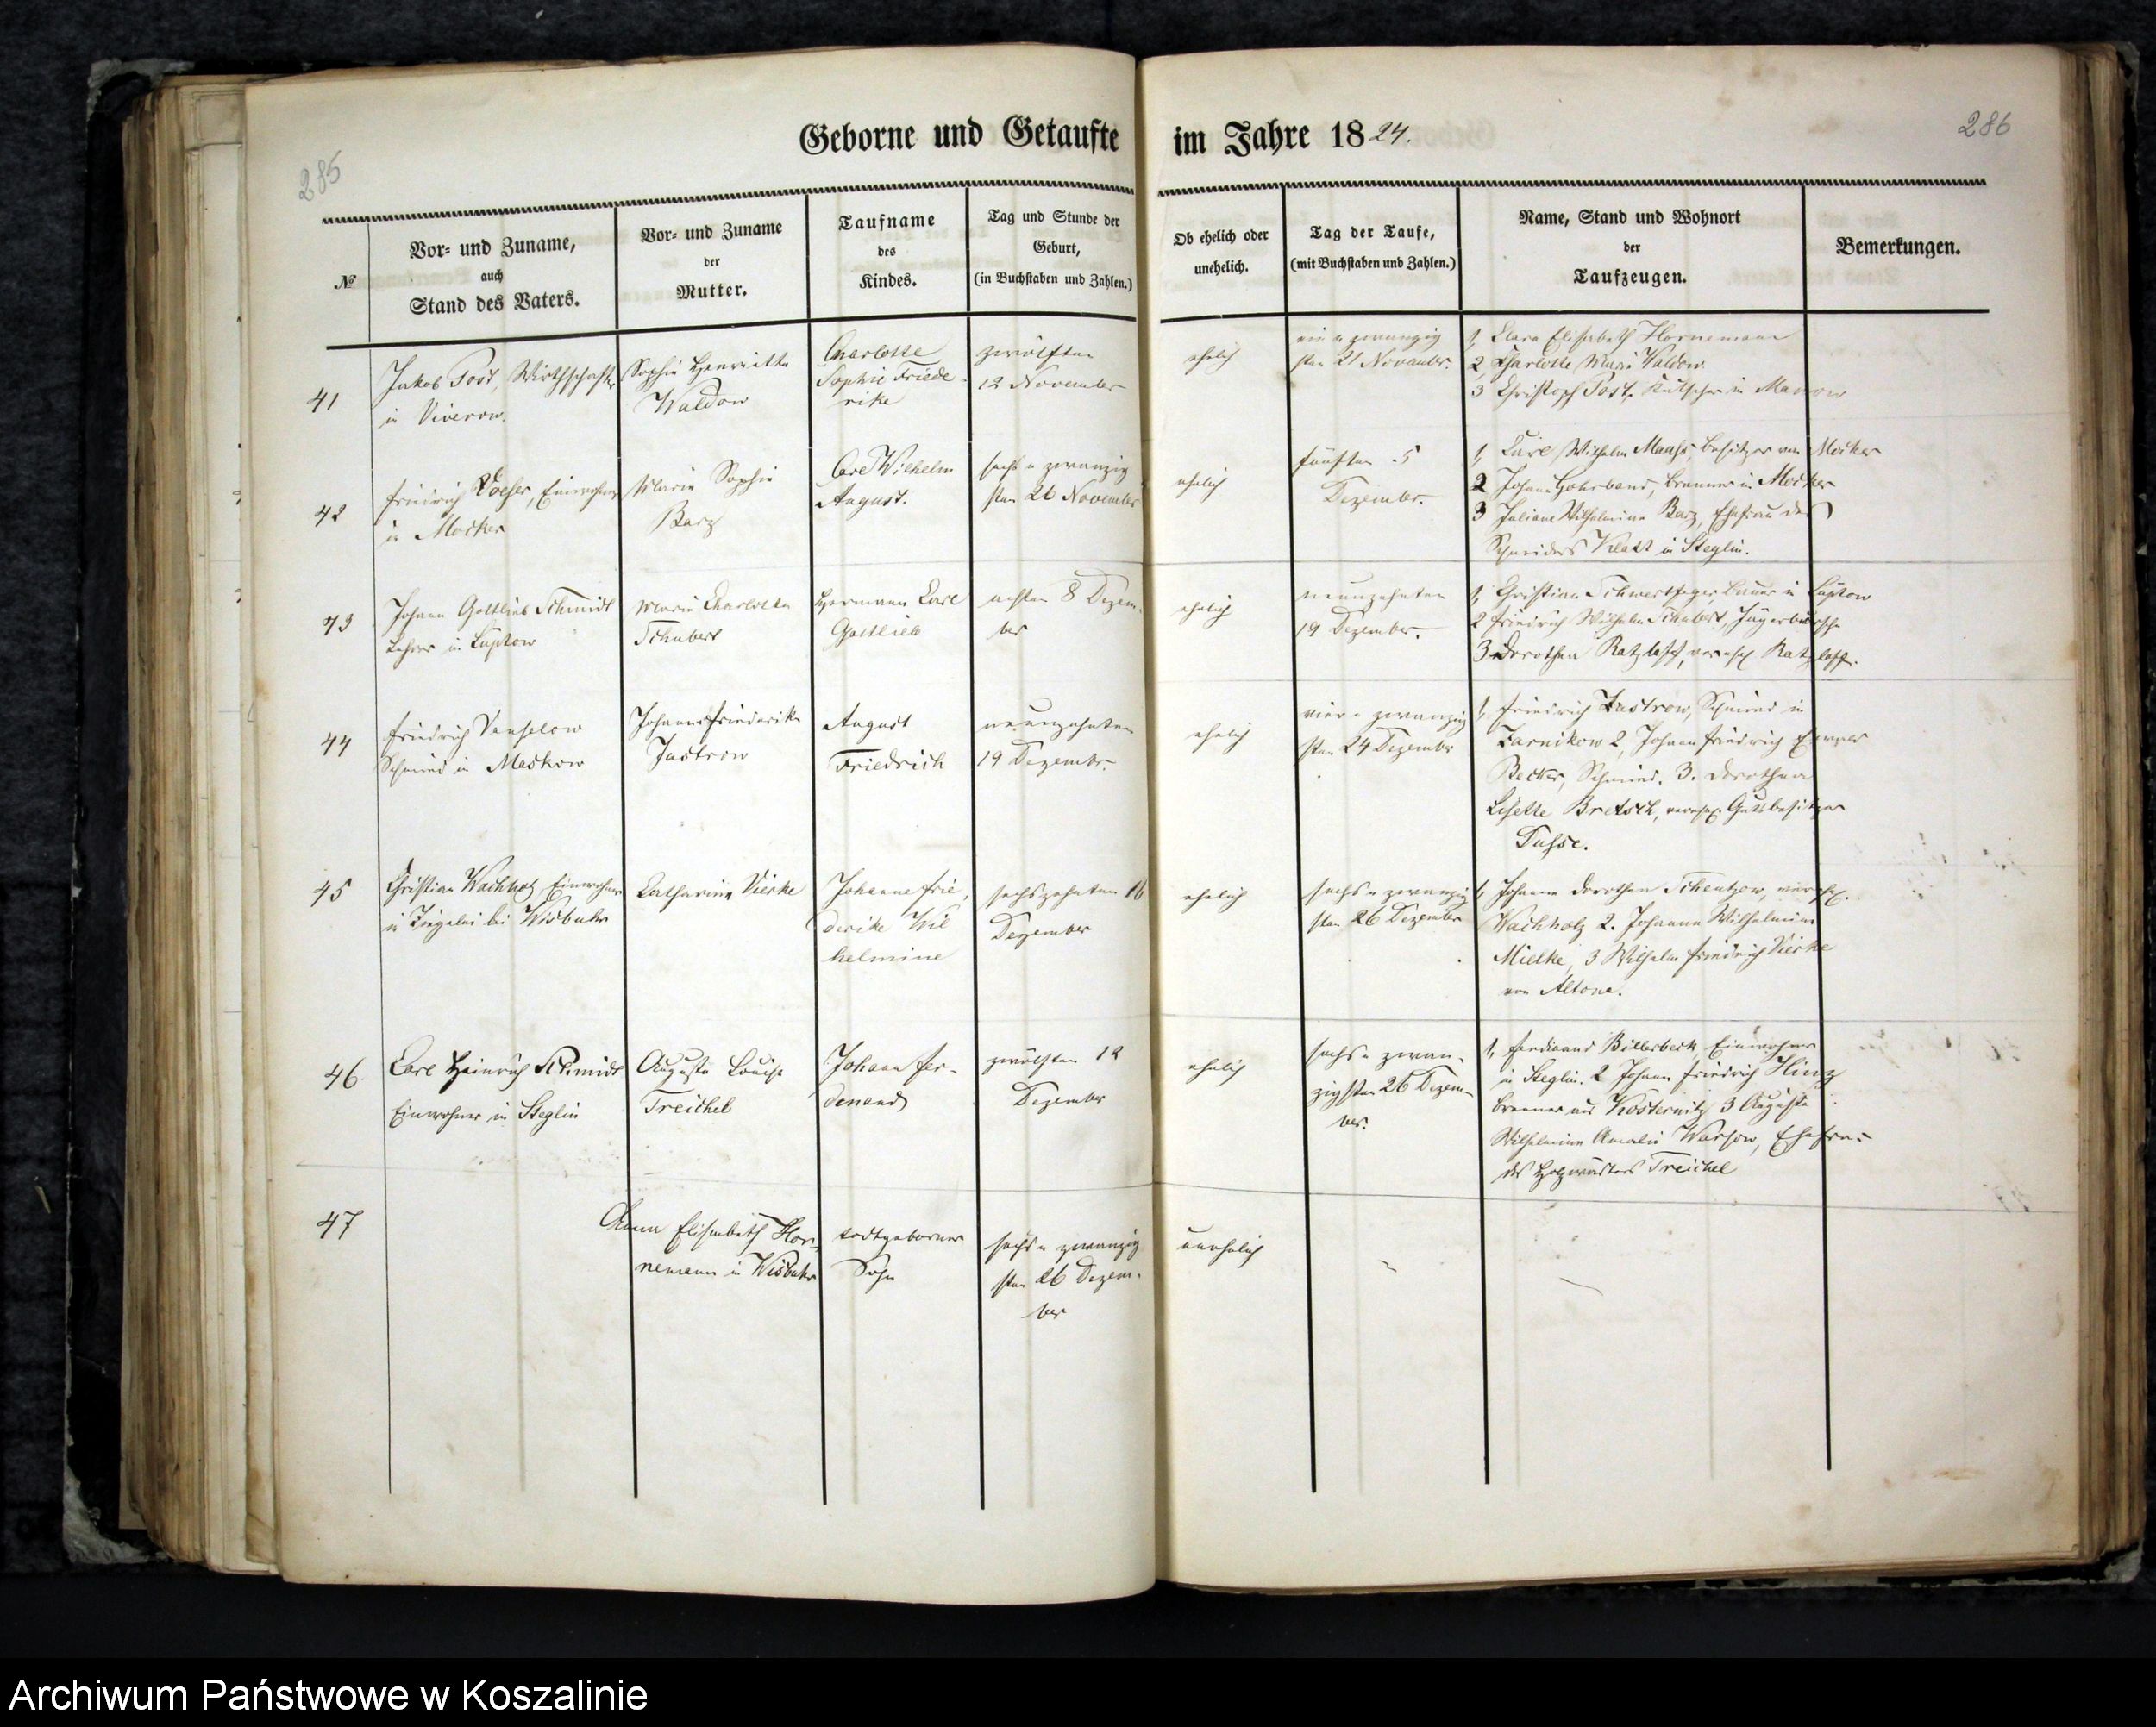 Geborne und Getaufte im Jahre 1824.
285
286
№
Vor- und Zuname,
auch
Stand des Vaters.
Vor- und Zuname
der
Mutter.
Taufname
des
Kindes.
Tag und Stunde der
Geburt,
(in Buchstaben und Zahlen.)
Ob ehelich oder
unehelich.
Tag der Taufe,
(mit Buchstaben und Zahlen.)
Name, Stand und Wohnort
der
Taufzeugen.
Bemerkungen.
41
Jakob Post, Wirthschafter
in Viverow.
Sophie Henriette
Waldow
Charlotte
Sophie Friede-
rike
zwölften
12 November
ehelich
ein u zwanzig
sten 21 November.
1, Clara Elisabeth Hornemann
2, Charlotte Marie Waldow.
3 Christoph Post, Kutscher in Manow
42
Friedrich Voeser, Einwohner
in Mocker
Marie Sophie
Barz
Carl Wilhelm
August.
sechs u zwanzig
sten 26 November
ehelich
fünften 5
Dezember.
1, Carl Wilhelm Maass, Besitzer von Mocker
2 Johann Gohrband, Brenner in Mocker
3 Juliane Wilhelmine Barz, Ehefrau des
Schneiders Klatt in Steglin.
43
Johann Gottlieb Schmidt
Lehrer in Lüptow
Marie Charlotte
Schubert
Hermann Carl
Gottlieb
achten 8 Dezem-
ber
ehelich
neunzehnten
19 Dezember.
1, Christian Schwertfeger Bauer in Lüptow
2 Friedrich Wilhelm Schubert, Jägerbursche
3 Dorothea Ratzlaff, verehel. Ratzlaff.
44
Friedrich Vanselow
Schmied in Maskow
Johanne Friederike
Jastrow
August
Friedrich
neunzehnten
19 Dezembr.
ehelich
vier u zwanzig
sten 24 Dezember
1, Friedrich Jastrow, Schmied in
Zarnikow 2, Johann Friedrich
Becker, Schmied. 3. Dorothea
Lisette Bretsch, verehel. Gutsbesitzer
45
Christian Wachholz, Einwohner
in Ziegelei bei Wisbuhr
Catharine Vierke
Johanne Frie-
derike Wil
helmine
sechszehnten 16
Dezember
ehelich
sechs u zwanzig
sten 26 Dezember
1, Johanne Dorothea Schentzow, verehel.
Wachholz 2. Johanne Wilhelmine
Mielke, 3 Wilhelm Friedrich Vierke
von Altona.
46
Carl Heinrich Schmidt
Einwohner in Steglin
Auguste Louise
Treichel
Johann Fer-
denand
zwölften 12
Dezember
ehelich
sechs u zwan-
zigsten 26 Dezem-
ber.
1, Ferdinand Billerbeck, Einwohner
in Steglin. 2 Johann Friedrich Hinz
Brenner aus Kosternitz 3 Auguste
Wilhelmine Amalie Warsow, Ehefrau
des Holzwärters Treichel
47
Anna Elisabeth Hor-
nemann in Wisbuhr
todtgeborner
Sohn
sechs u zwanzig
sten 26 Dezem-
ber
unehelich
Archiwum Państwowe w Koszalinie